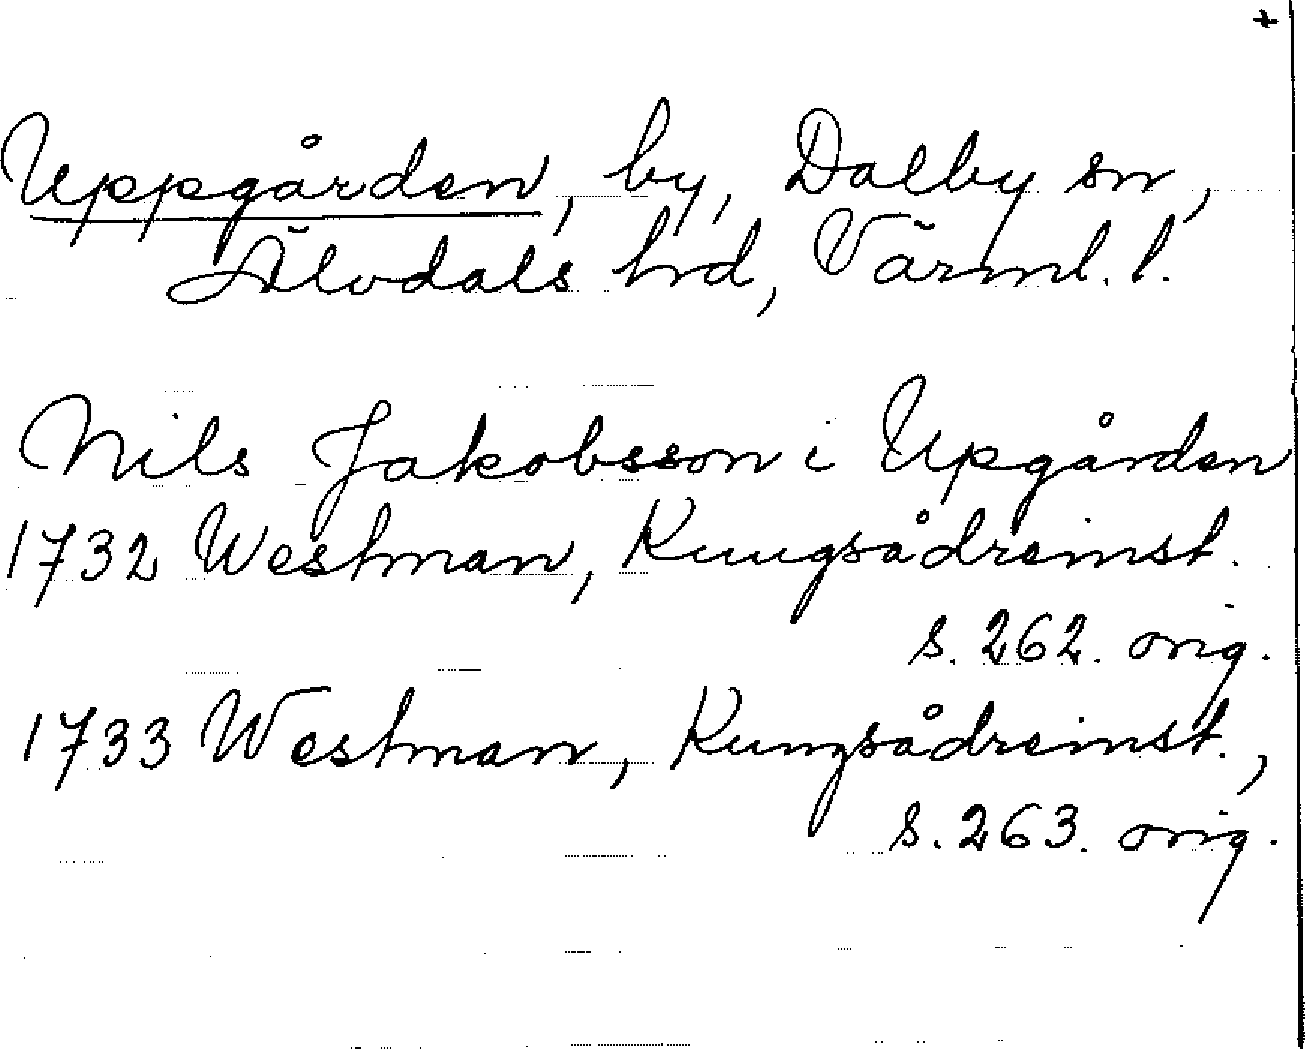 +
Uppgården, by, Dalby sn,
Älvdals hd, Värml. l.
Nils Jakobsson i Upgården
1732 Westman, Kungsådreinst.
s. 262. orig.
1733 Westman, Kungsådreinst.,
s. 263. orig.